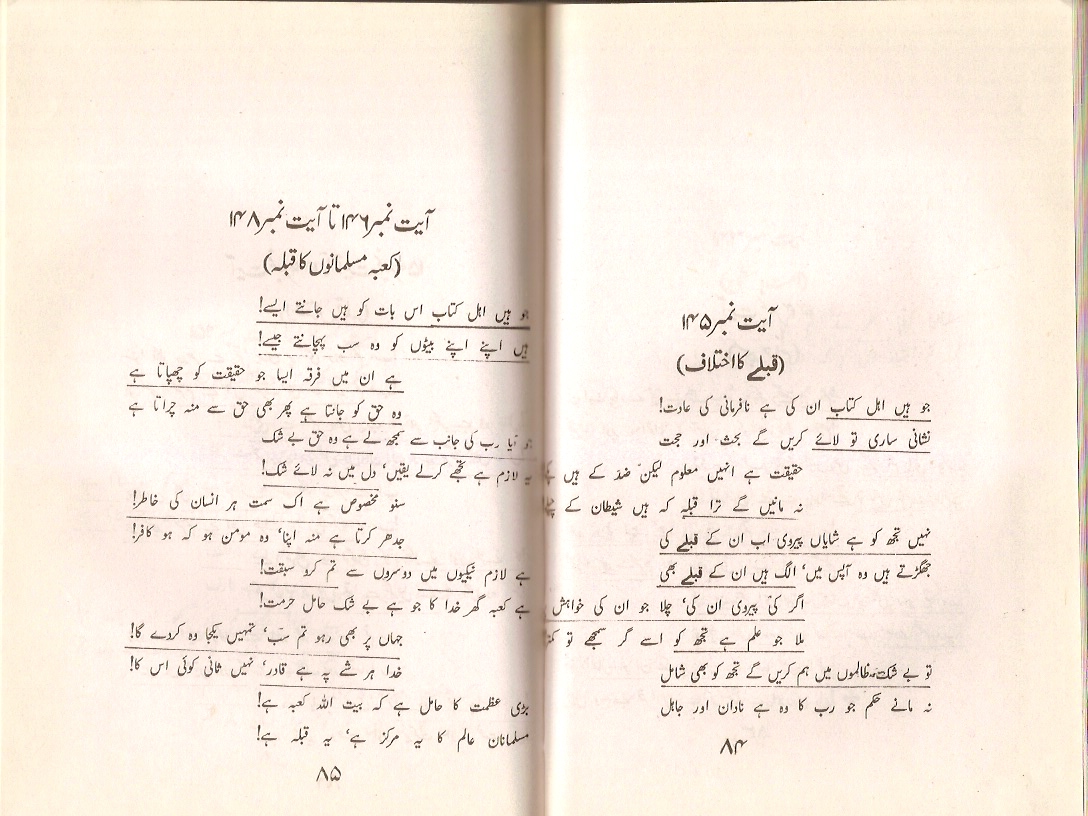 آیت نمبر ۱۴۵
(قبلے کا اختلاف)
جو ہیں اہل کتاب ان کی ہے نافرمانی کی عادت!
نشانی ساری تو لائے کریں گے بحث اور حجت
حقیقت ہے انہیں معلوم لیکن ضد کے ہیں
نہ مانیں گے ترا قبلہ کہ ہیں شیطان کے
نہیں تجھ کو ہے شایاں پیروی اب ان کے قبلے کی
جھگڑتے ہیں وہ آپس میں‘ الگ ہیں ان کے قبلے بھی
اگر کی پیروی ان کی‘ چلا جو ان کی خواہش
ملا جو علم ہے تجھ کو اسے گر سمجھے تو
تو بے شک ظالموں میں ہم کریں گے تجھ کو بھی شامل
نہ مانے حکم جو رب کا وہ ہے نادان اور جاہل
۸۴
آیت نمبر ۱۴۶ تا آیت نمبر ۱۴۸
(کعبہ مسلمانوں کا قبلہ)
جو ہیں اہل کتاب اس بات کو ہیں جانتے ایسے!
ہیں اپنے اپنے بیٹوں کو وہ سب پہچانتے جیسے!
ہے ان میں فرقہ ایسا جو حقیقت کو چھپاتا ہے
وہ حق کو جانتا ہے پھر بھی حق سے منہ چراتا ہے
جو آیا رب کی جانب سے سمجھ لے ہے وہ حق بے شک
یہ لازم ہے تجھے کرلے یقیں‘ دل میں نہ لائے شک!
سنو مخصوص ہے اک سمت ہر انسان کی خاطر!
جدھر کرتا ہے منہ اپنا‘ وہ مومن ہو کہ ہو کافر!
ہے لازم نیکیوں میں دوسروں سے تم کرو سبقت!
ہے کعبہ گھر خدا کا جو ہے بے شک حامل حرمت!
جہاں پر بھی رہو تم سب‘ تمہیں یکجا وہ کردے گا!
خدا ہر شے پہ ہے قادر‘ نہیں ثانی کوئی اس کا!
بڑی عظمت کا حامل ہے کہ بیت اللہ کعبہ ہے!
مسلمانان عالم کا یہ مرکز ہے‘ یہ قبلہ ہے!
۸۵